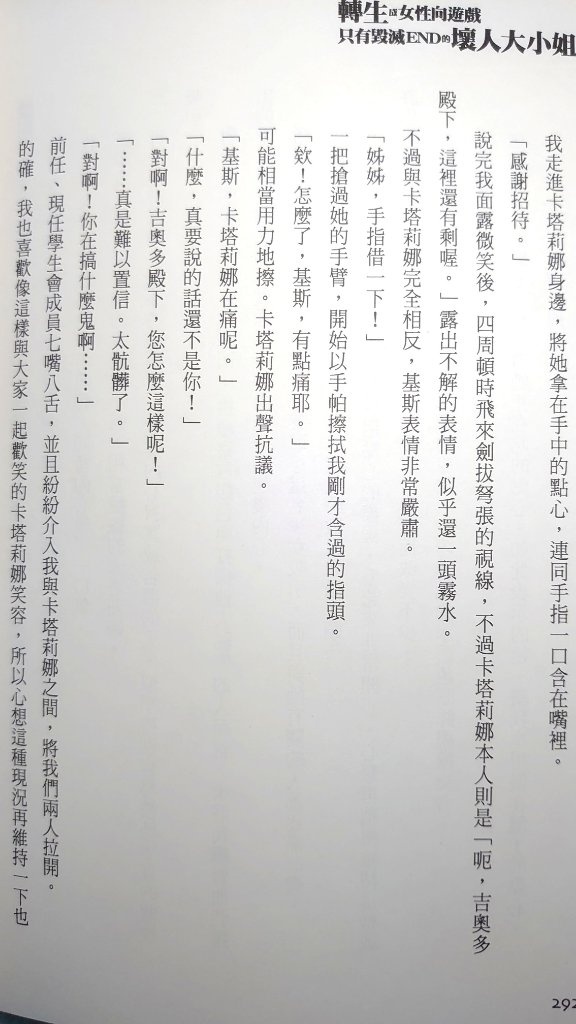 轉生成女性向遊戲
只有毀滅END的壞人大小姐
我走進卡塔莉娜身邊，將她拿在手中的點心，連同手指一口含在嘴裡。
「感謝招待。」
說完我面露微笑後，四周頓時飛來劍拔弩張的視線，不過卡塔莉娜本人則是「呃，吉奧多
殿下，這裡還有剩喔。」露出不解的表情，似乎還一頭霧水。
不過與卡塔莉娜完全相反，基斯表情非常嚴肅。
「姊姊，手指借一下！」
一把搶過她的手臂，開始以手帕擦拭我剛才含過的指頭。
「欸！怎麼了，基斯，有點痛耶。」
可能相當用力地擦。卡塔莉娜出聲抗議。
「基斯，卡塔莉娜在痛呢。」
「什麼，真要說的話還不是你！」
「對啊！吉奧多殿下，您怎麼這樣呢！」
「……真是難以置信。太骯髒了。」
「對啊！你在搞什麼鬼啊……」
前任、現任學生會成員七嘴八舌，並且紛紛介入我與卡塔莉娜之間，將我們兩人拉開。
的確，我也喜歡像這樣與大家一起歡笑的卡塔莉娜笑容，所以心想這種現況再維持一下也
292